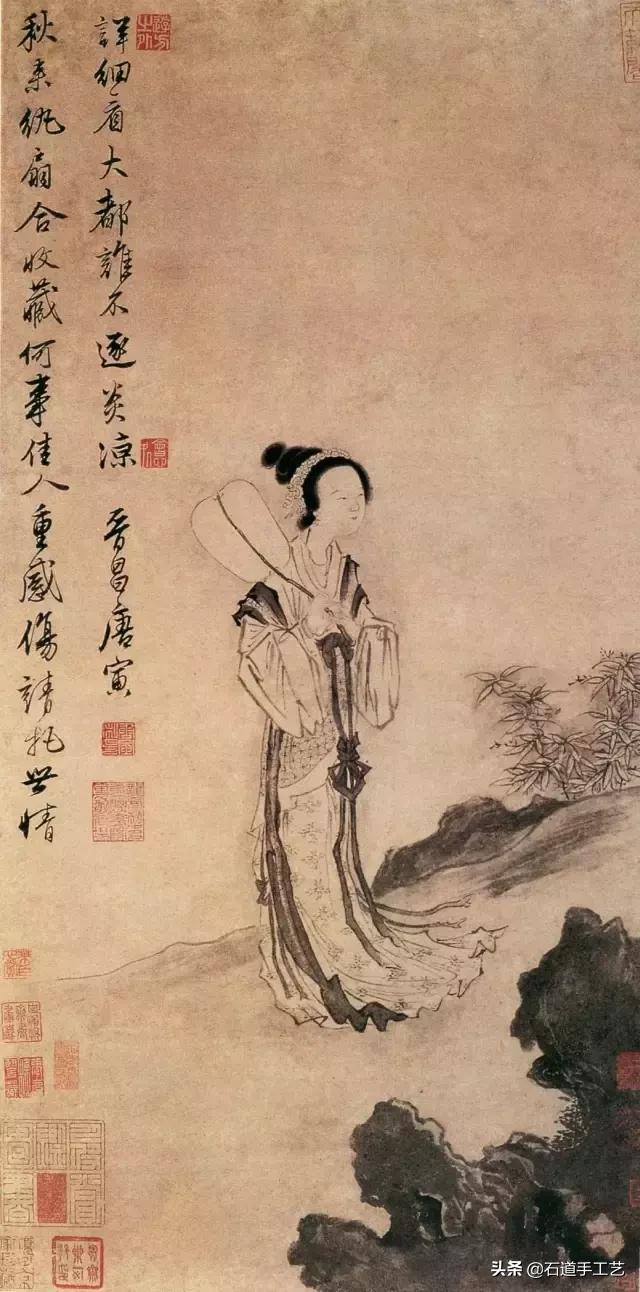 秋来紈扇合收藏何事佳人重感傷請托世情
詳細看大都誰不逐炎凉
晋昌唐寅
头条@石道手工艺